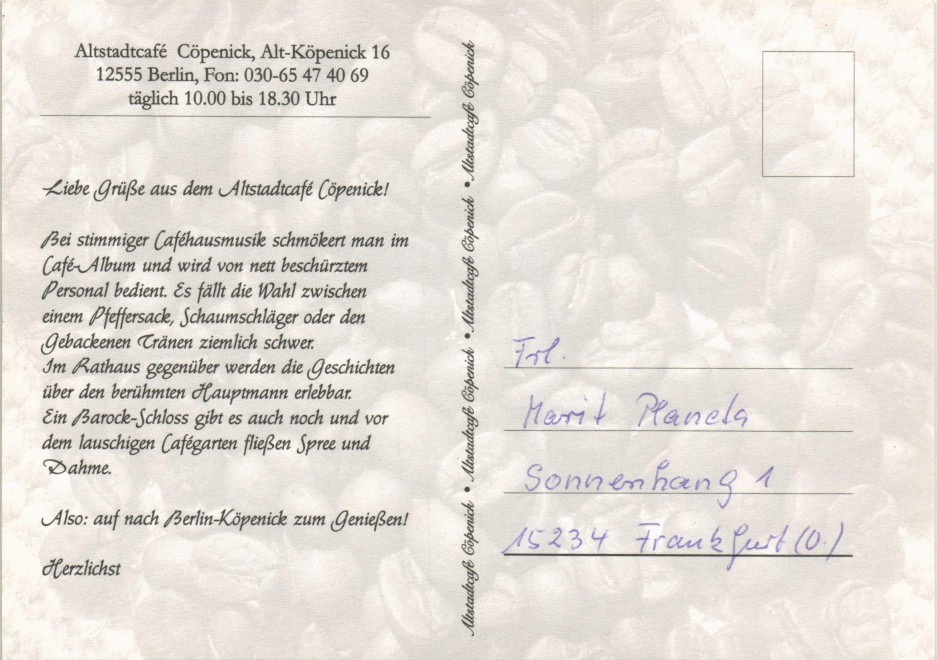 Altstadtcafé Cöpenick, Alt-Köpenick 16
12555 Berlin, Fon: 030-65 47 40 69
täglich 10.00 bis 18.30 Uhr
Liebe Grüße aus dem Altstadtcafé Cöpenick!
Bei stimmiger Caféhausmusik schmökert man im
Café-Album und wird von nett beschürztem
Personal bedient. Es fällt die Wahl zwischen
einem Pfeffersack, Schaumschläger oder den
Gebackenen Tränen ziemlich schwer.
Im Rathaus gegenüber werden die Geschichten
über den berühmten Hauptmann erlebbar.
Ein Barock-Schloss gibt es auch noch und vor
dem lauschigen Cafégarten fließen Spree und
Dahme.
Also: auf nach Berlin-Köpenick zum Genießen!
Herzlichst
Altstadtcafé Cöpenick • Altstadtcafé Cöpenick • Altstadtcafé Cöpenick • Altstadtcafé Cöpenick
Frl.
Marit Planeta
Sonnenhang 1
15234 Frankfurt (O.)